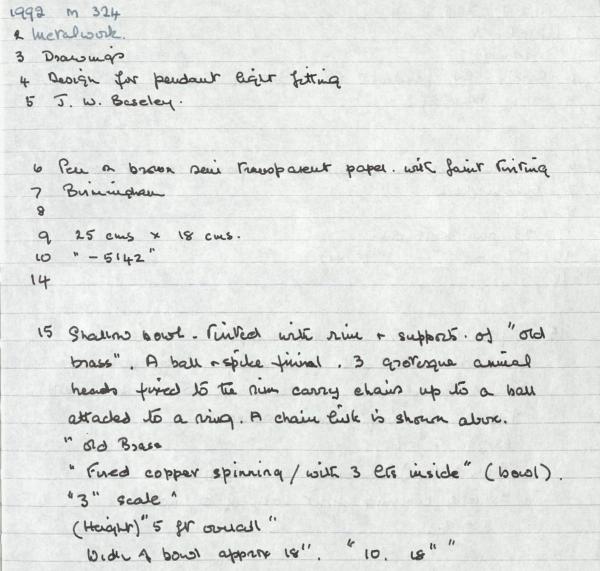 1992 M 324
2 Metalwork.
3 Drawings
4 Design for pendant light fitting
5 J. W. Beseley.
6 Pen on brown semi transparent paper. with faint tinting
7 Birmingham
8
9 25 cms × 18 cms.
10 " - 5142"
14
15 Shallow bowl - tinted with rim + support. of "old
brass". A ball + spike finial. 3 grotesque animal
heads fixed to the rim carry chains up to a ball
attached to a ring. A chain link is shown above.
" old Brass
" Fused copper spinning / with 3 lts inside" (bowl).
"3" scale "
(Height) "5 ft overall"
Width of bowl approx 18". " 10. 18" "